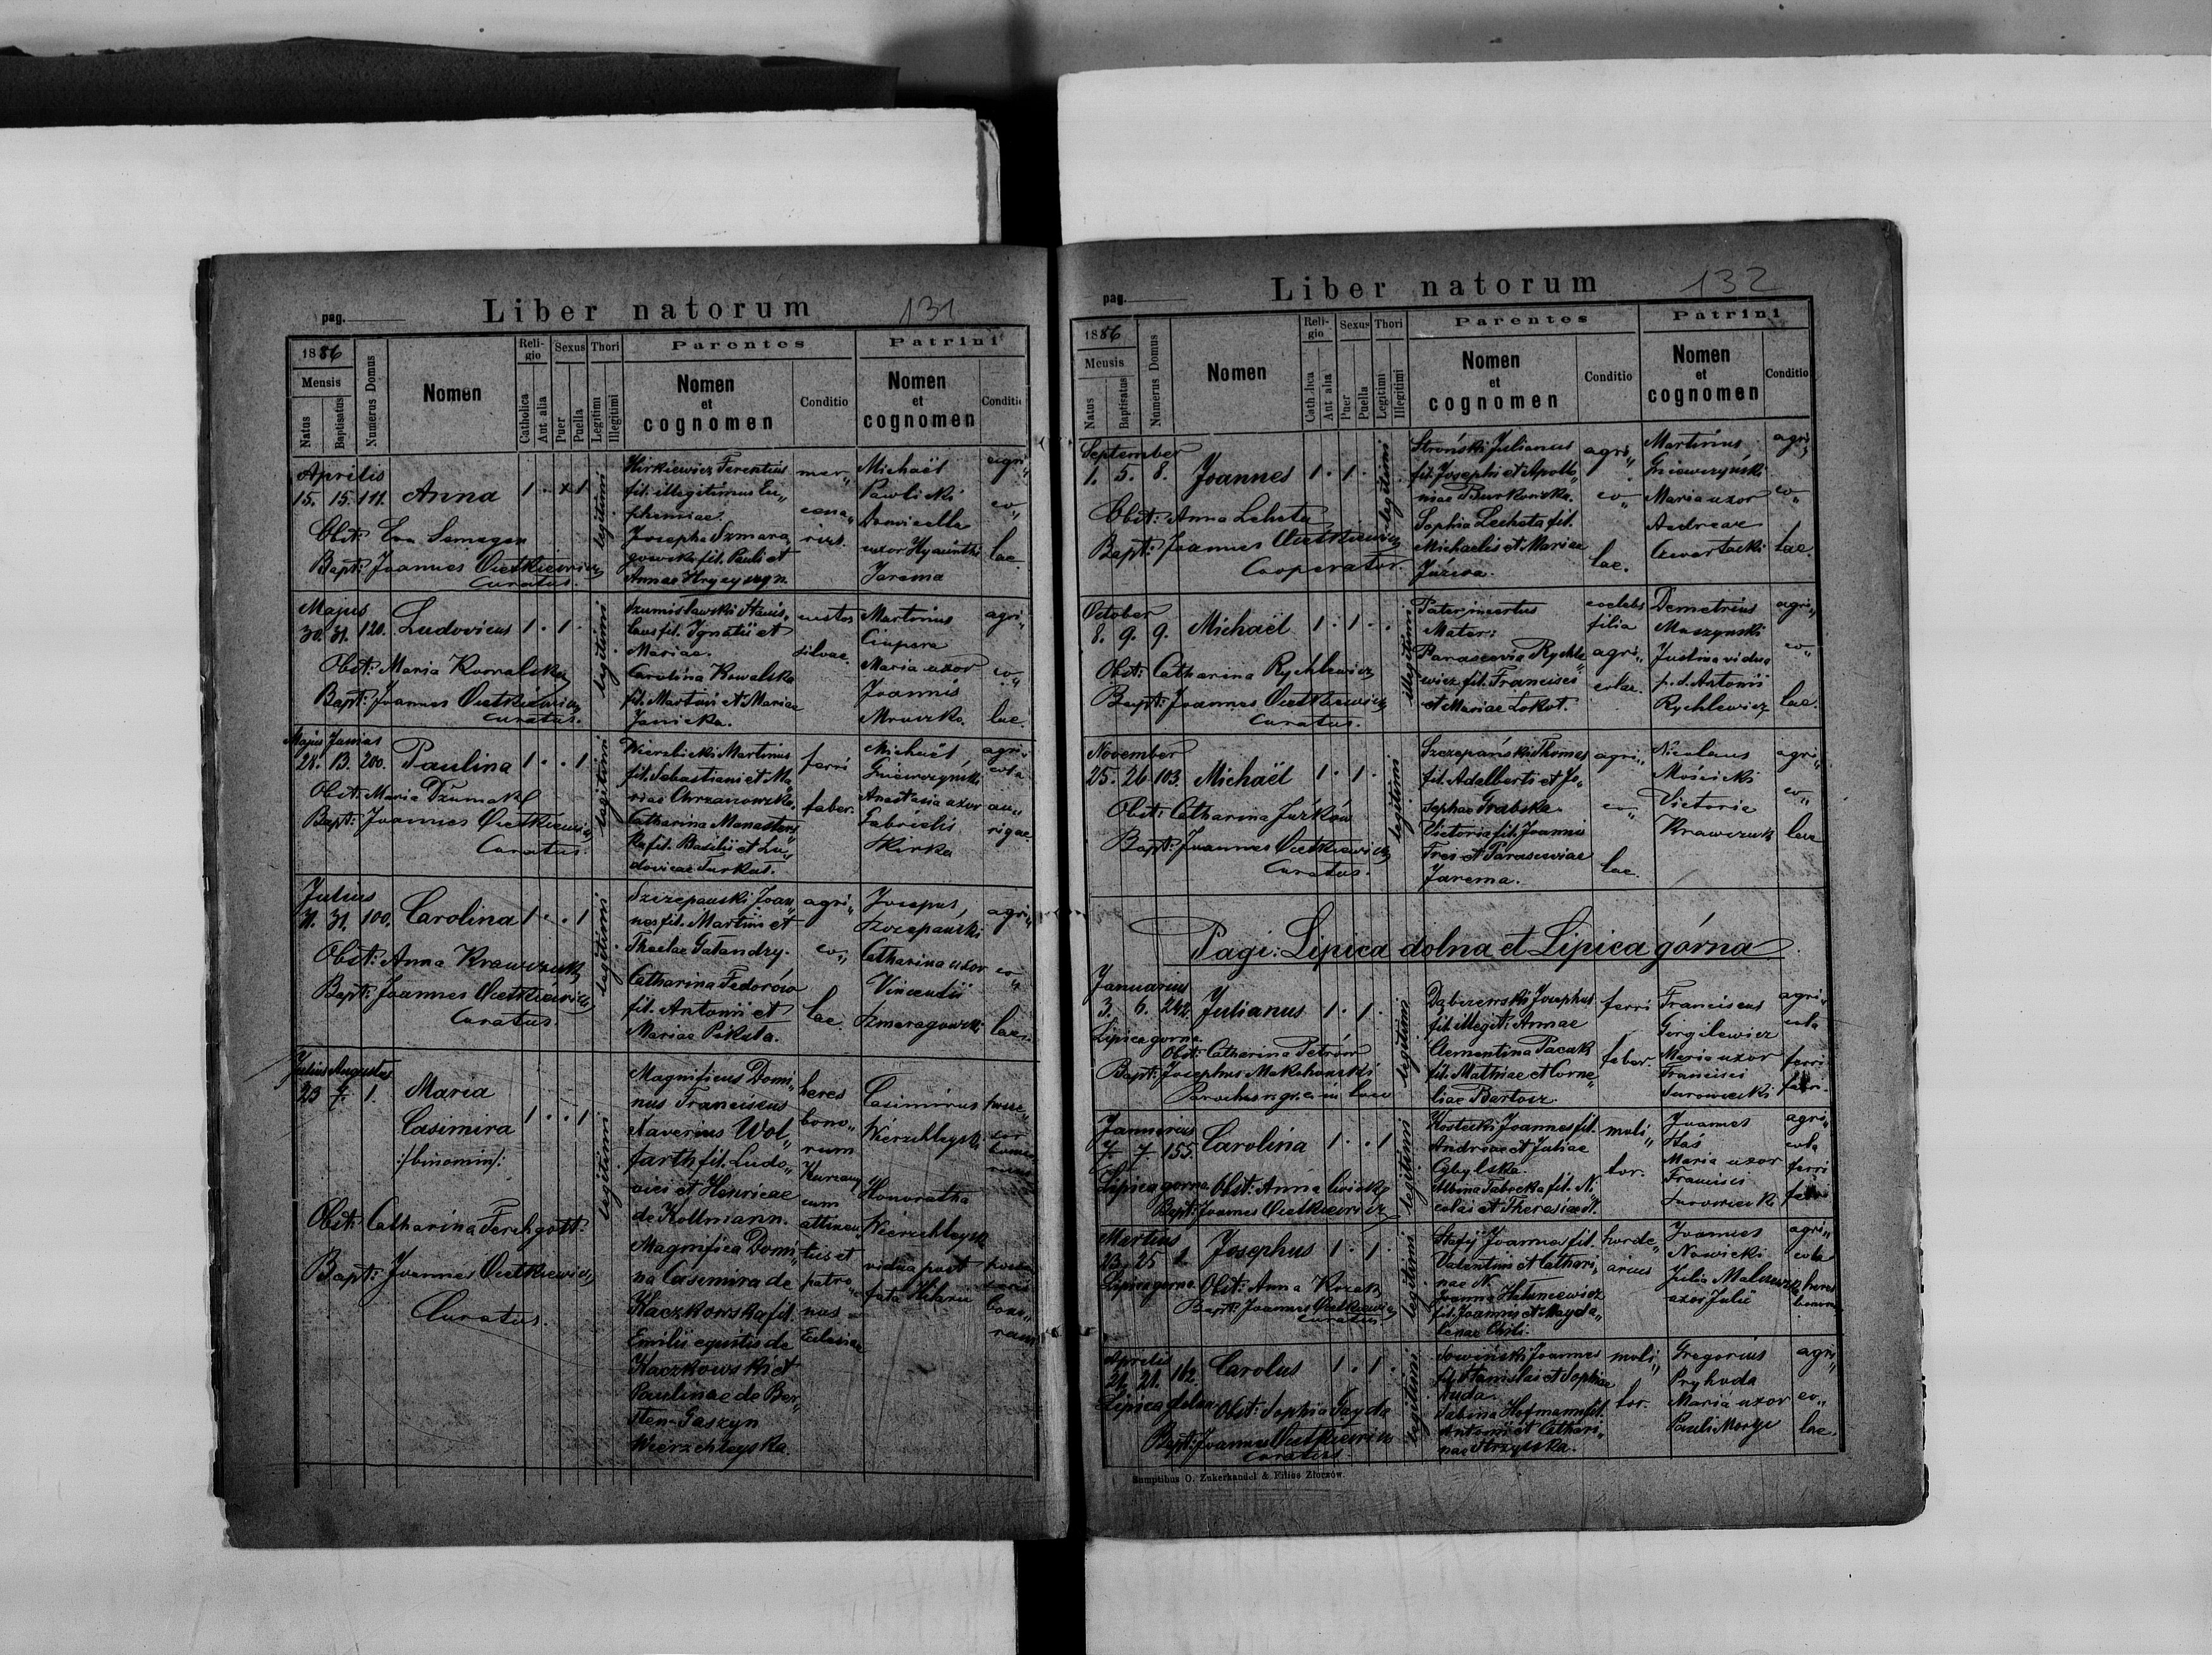 pag.
Liber natorum
131
1886
Mensis
Natus
Baptisatus
Numerus Domus
Nomen
Reli-
gio
Catholica
Aut alia
Sexus
Puer
Puella
Thori
Legitimi
Illegitimi
Parentes
Nomen
et
cognomen
Conditio
Patrini
Nomen
et
cognomen
Conditio
Aprilis
15. 15. 111. Anna 1 . x 1
Obst: Eva Semegen
Bapt: Joannes
Curatus.
legitimi
Hirkiewicz Terentius
fil. illegitimus Eu„
phemiae.
Josepha Szmara„
gowska fil. Pauli et
Annae Hrycyszyn.
mer„
cena„
rius.
Michaël
Pawlicki
Domicella
uxor Hyacinthi
Jarema
agri„
co„
lae.
Majus
30. 31. 120. Ludovicus 1 . 1 .
Obst: Maria Kowalska
Bapt: Joannes
Curatus.
legitimi
Szumisławski Stanis„
laus fil. Ignatii et
Mariae.
Carolina Kowalska
fil. Martini et Mariae
Janicka.
custos
silvae.
Martinus
Ciupera
Maria uxor
Joannis
Mruczko
agri„
co„
lae.
Majus Junius
28. 13. 200. Paulina 1 . . 1
Obst: Maria
Bapt: Joannes
Curatus.
legitimi
Wierzbicki Martinus
fil. Sebastiani et Ma„
riae Chrzanowska.
Catharina Monasters„
ka fil. Basilii et Lu„
dovicae Turkat.
ferri
faber.
Michaël
Gniewczyński
Anastasia uxor
Gabrielis
Hirka
agri„
cola
au„
rigae.
Julius
31. 31. 100. Carolina 1 . . 1
Obst: Anna Krawczuk
Bapt: Joannes
Curatus.
legitimi
Szczepański Joan„
nes fil. Martini et
Theclae Gatandzy.
Catharina Fedorów
fil. Antonii et
Mariae Pikuła.
agri„
co„
lae.
Josepus
Szczepański
Catharina uxor
Vincentii
Szmaragowski
agri„
co„
lae.
Julius Augustus
23 7 1. Maria
Casimira 1 . . 1
/:binomin:/
Obst: Catharina Ferchgott.
Bapt: Joannes
Curatus.
legitimi
Magnificus Domi„
nus Franciscus
Xaverius Wol„
farth fil. Ludo„
vici et Henricae
de Kollmann.
Magnifica Domi„
na Casimira de
Kaczkowska fil.
Emilii equitis de
Kaczkowski et
Paulinae de Ber„
sten-Gaszyn
Wierzchleyska.
heres
bono„
rum
cum
attinen„
tiis et
patro„
nus
Ecclesiae
Casimirus
Wierzchleyski
Honoratha
Wierzchleyska
vidua post
fata Hilarii
bono„
rum
pag.
Liber natorum
132
1886
Mensis
Natus
Baptisatus
Numerus Domus
Nomen
Reli-
gio
Catholica
Aut alia
Sexus
Puer
Puella
Thori
Legitimi
Illegitimi
Parentes
Nomen
et
cognomen
Conditio
Patrini
Nomen
et
cognomen
Conditio
September
1. 5. 8. Joannes 1 . 1 .
Obst: Anna Leheta
Bapt: Joannes
Cooperator.
legitimi
Stroński Julianus
fil. Josephi et Apollo„
niae Burkowska.
Sophia Leheta fil.
Michaelis et Mariae
Juzwa.
agri„
co„
lae.
Martinus
Gniewczyński
Maria uxor
Andreae
Czwartacki
agri„
co„
lae.
October
8. 9. 9. Michaël 1 . 1 . .
Obst: Catharina Rychlewicz
Bapt: Joannes
Curatus.
illegitimi
Pater: incertus
Mater:
Parascevia Rychle„
wicz fil. Francisci
et Mariae Łokot.
coelebs
filia
agri„
colae.
Demetrius
Muszynski
Justina vidua
p. d. Antonii
Rychlewicz
agri„
co„
lae.
November
25. 26. 103. Michaël 1 . 1 .
Obst: Catharina Jużków
Bapt: Joannes
Curatus.
legitimi
Szczepański Thomas
fil. Adalberti et Jo„
sephae Grabska.
Victoria fil. Joannis
Frei et Parasceviae
Jarema.
agri„
co„
lae.
Nicolaus
Mościcki
Victoria
Krawczuk
agri„
co„
lae
Pagi: Lipica dolna et Lipica górna
Januarius
3. 6. 242. Julianus 1 . 1 .
Lipica gorna
Obst: Catharina Petrów
Bapt: Josephus Mokohonski
Parochus r. gr. c. in loco
legitimi
Dąbrowski Josephus
fil. illegit: Annae
Clementina Pacuk
fil. Mathiae et Corne„
liae Bartosz.
ferri
faber.
Franciscus
Gorgilewicz
Maria uxor
Francisci
Surowiecki
agri„
cola
ferri
fabri.
Januarius
7. 7. 155. Carolina 1 . . 1
Lipica gorna Obst: Anna
Bapt: Joannes
legitimi
Kostecki Joannes fil.
Andreae et Juliae
Cybylska.
Albina Tabocka fil. Ni„
colai et Theresiae N.
moli„
tor.
Joannes
Huś
Maria uxor
Francisci
Surowiecki
agri„
cola
ferri
Martius
23. 25 2. Josephus 1 . 1 .
Lipica gorna Obst: Anna Kozak
Bapt: Joannes
Curatus.
legitimi
Stefij Joannes fil.
Valentini et Cathari„
nae N.
Joanna Hatuniewicz
fil. Joannis et Magda„
lenae Chili.
horde„
arius
Joannes
Nowicki
Julia Malczewska
uxor Julii
agri„
cola
heres
bonorum
Aprilis
21. 21. 162. Carolus 1 . 1 .
Lipica dolna
Obst: Sophia Gayda
Bapt: Joannes
Curatus.
legitimi
Sowiński Joannes
fil. Stanislai et Sophiae
Duda.
Sabina Hofmann fil.
Antonii et Cathari„
nae Strzyska.
moli„
tor.
Gregorius
Pryhoda
Maria uxor
Pauli Moryc
agri„
co„
lae.
Sumptibus O. Zukerkandel & Filius Złoczów.